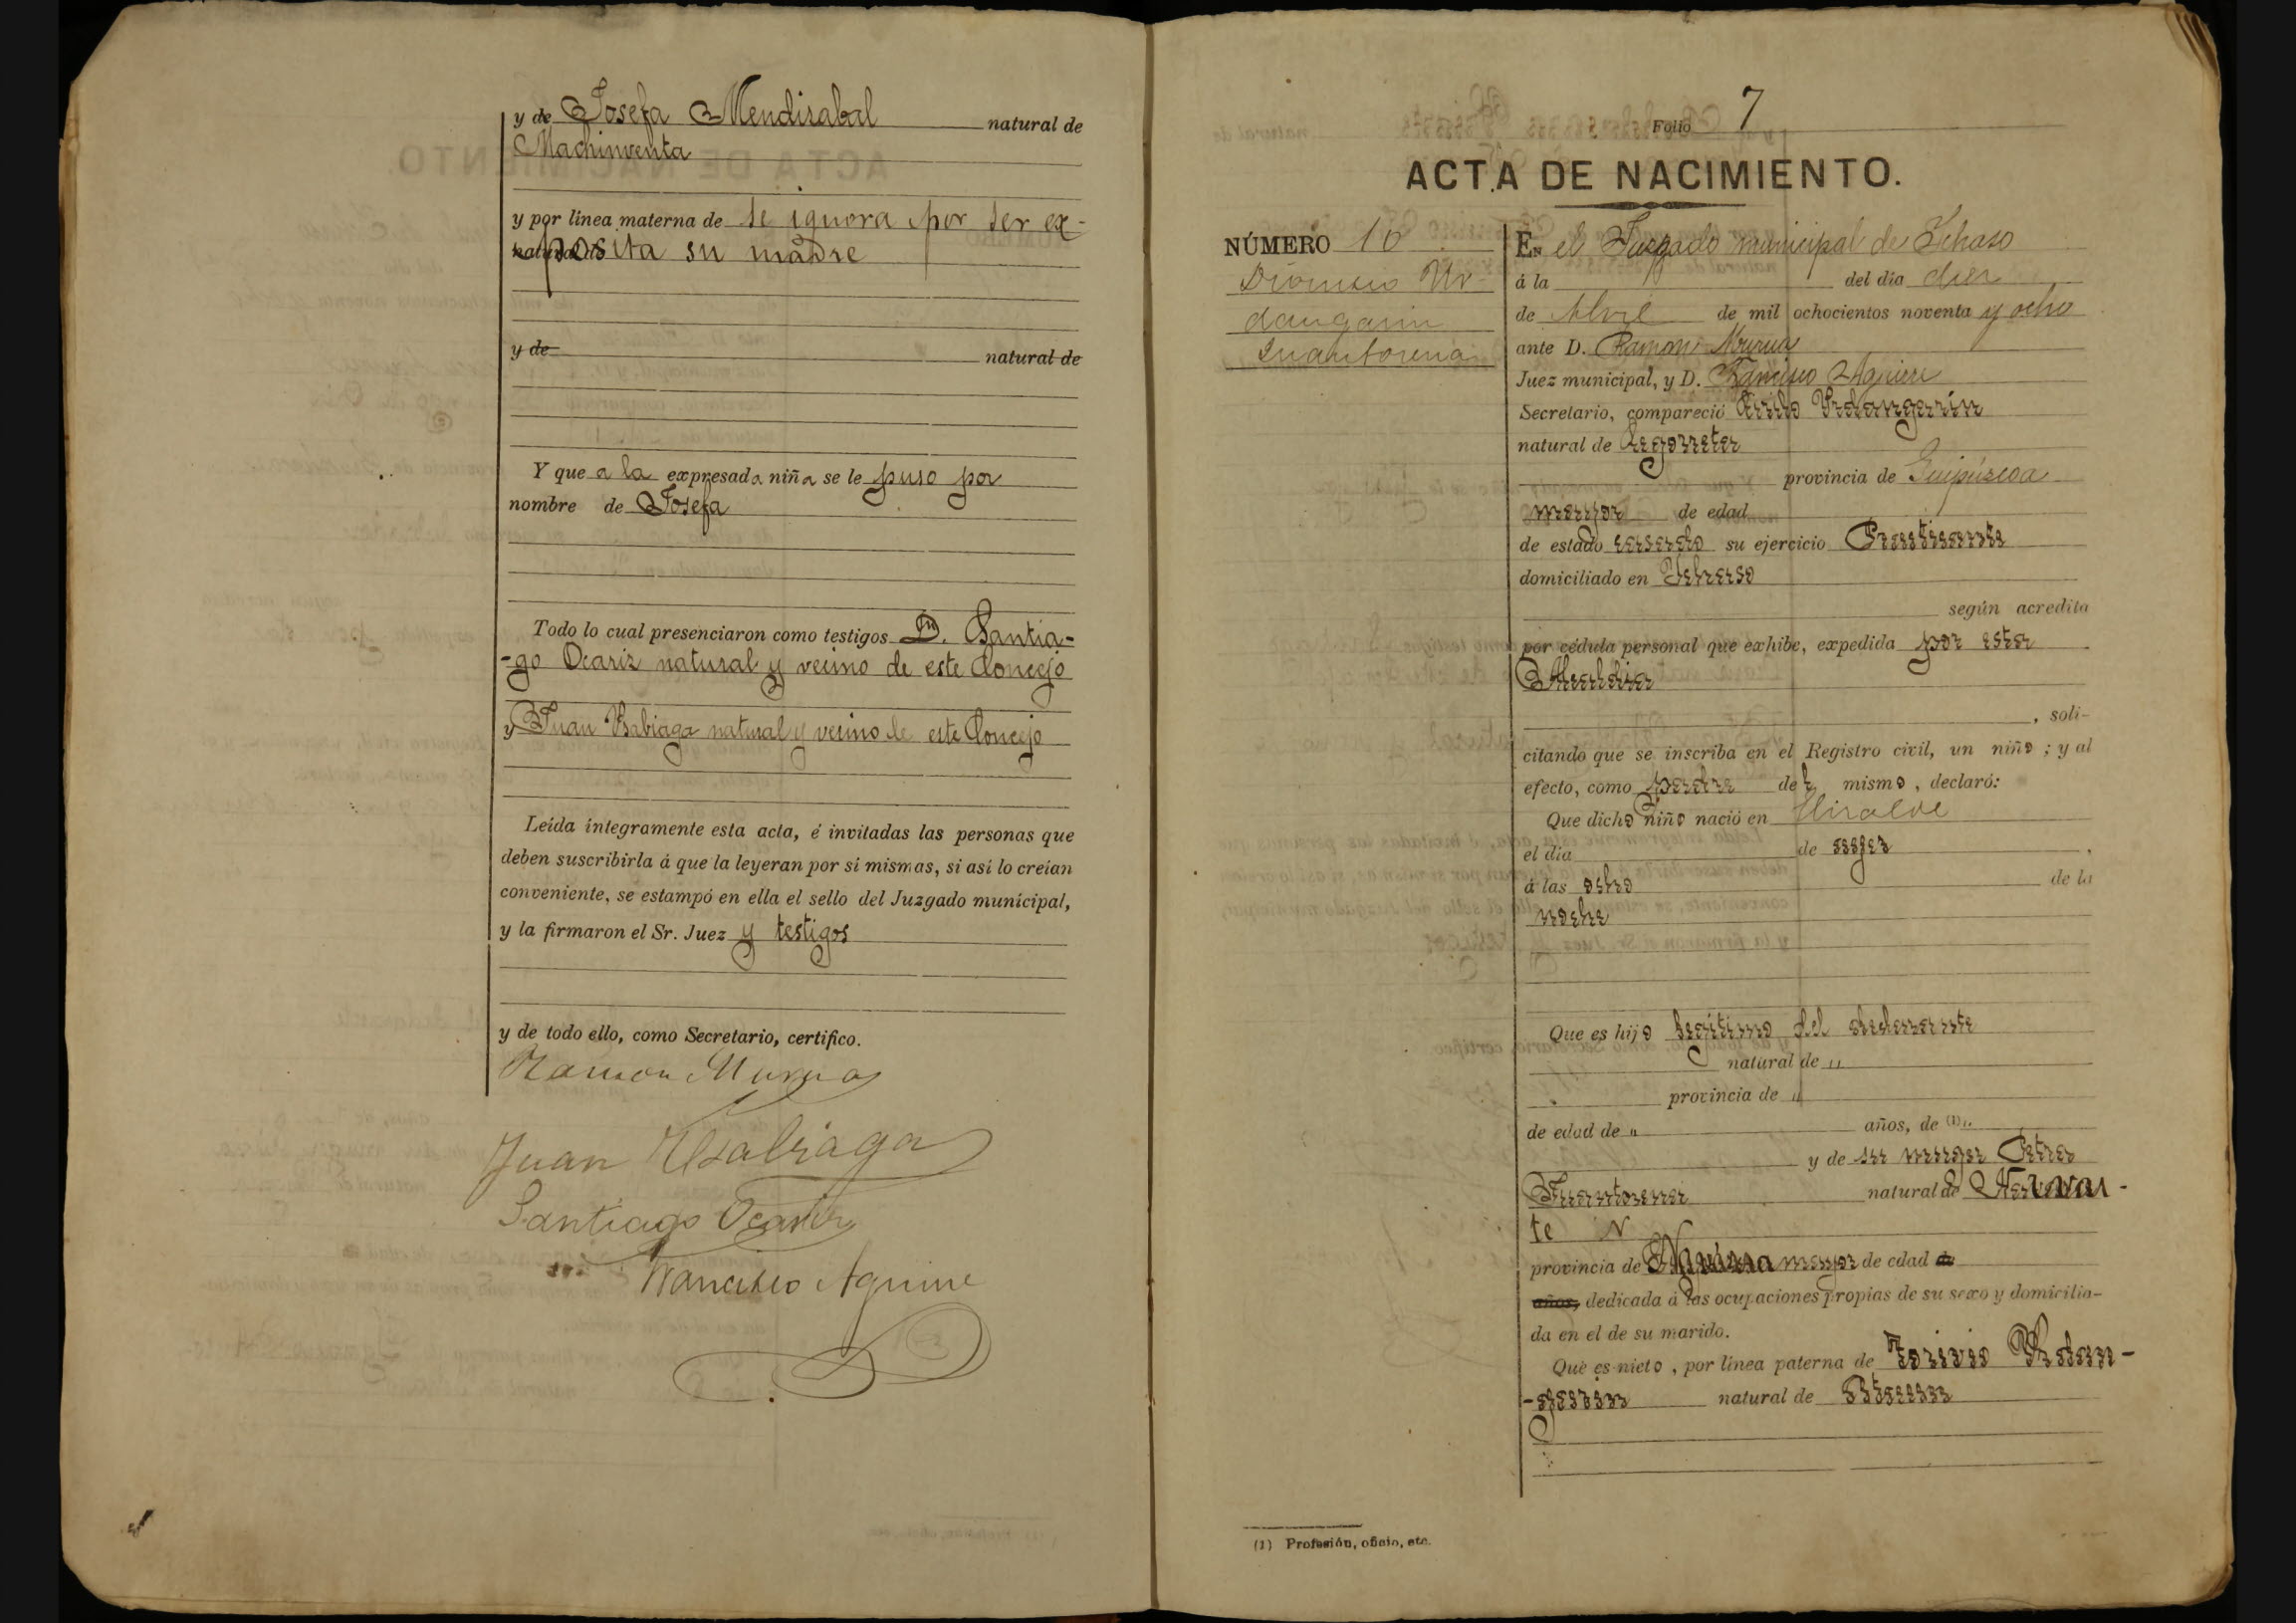 y de Josefa Mendizabal natural de
Machinventa
y por línea materna de se ignora por ser ex-
posita su madre
y de natural de
Y que a la expresada niña se le puso por
nombre de Josefa
Todo lo cual presenciaron como testigos D. Santia-
-go Ocariz natural y vecino de este Concejo
y Juan Usabiaga natural y vecino de este Concejo
Leída íntegramente esta acta, é invitadas las personas que
deben suscribirla á que la leyeran por sí mismas, si así lo creían
conveniente, se estampó en ella el sello del Juzgado municipal,
y la firmaron el Sr. Juez y testigos
y de todo ello, como Secretario, certifico.
Ramon Murua
Juan Usabiaga
Santiago Ocariz
Francisco Aguirre
Folio 7
ACTA DE NACIMIENTO.
NÚMERO 10
Dionisio Ur-
dangarin
Juantorena
En el Juzgado municipal de Ichaso
á la del día diez
de Abril de mil ochocientos noventa y ocho
ante D. Ramon Murua
Juez municipal, y D. Francisco Aguirre
Secretario, compareció Urdangarín
natural de Legorreta
provincia de Guipúzcoa
mayor de edad
de estado casado su ejercicio
domiciliado en Ichaso
según acredita
por cédula personal que exhibe, expedida por esta
Alcaldia
, soli-
citando que se inscriba en el Registro civil, un niño ; y al
efecto, como padre del mismo , declaró:
Que dicho niño nació en
el día de ayer ,
á las ocho de la
noche
Que es hijo legítimo del declarante
natural de "
provincia de "
de edad de " años, de (1) "
y de su mujer Petra
Juantorena natural de
te
provincia de mayor de edad de
años, dedicada á las ocupaciones propias de su sexo y domicilia-
da en el de su marido.
Que es nieto , por línea paterna de Urdan-
-garín natural de
(1) Profesión, oficio, etc.